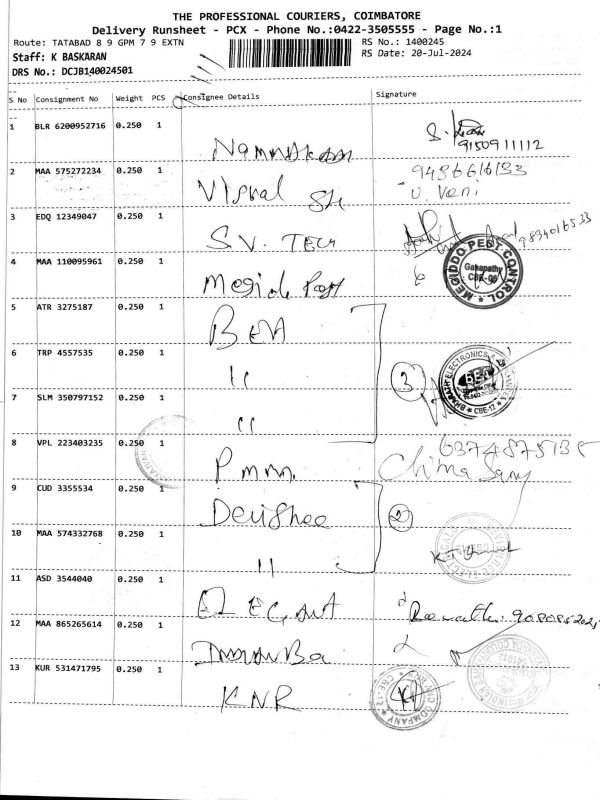 THE PROFESSIONAL COURIERS, COIMBATORE
Delivery Runsheet - PCX - Phone No.:0422-3505555 - Page No.:1
Route: TATABAD 8 9 GPM 7 9 EXTN
RS No.: 1400245
Staff: K BASKARAN
RS Date: 20-Jul-2024
DRS No.: DCJB140024501
S No Consignment No Weight PCS Consignee Details Signature
1 BLR 6200952716 0.250 1
9150911112
2 MAA 575272234 0.250 1 Vishal
U. Veni
3 EDQ 12349047 0.250 1 S.V. TECH 9894016533
4 MAA 110095961 0.250 1
MEGIDDO PEST CONTROL
Ganapathy
CBE-06
5 ATR 3275187 0.250 1 BEA
6 TRP 4557535 0.250 1 " 3
BHARATH ELECTRONICS &
BEA
CBE-12
7 SLM 350797152 0.250 1 "
8 VPL 223403235 0.250 1 P.mm.
9 CUD 3355534 0.250 1 Devishree 2
10 MAA 574332768 0.250 1 "
11 ASD 3544040 0.250 1 ELEGANT
12 MAA 865265614 0.250 1
13 KUR 531471795 0.250 1 KNR
COMPANY
CBE-12